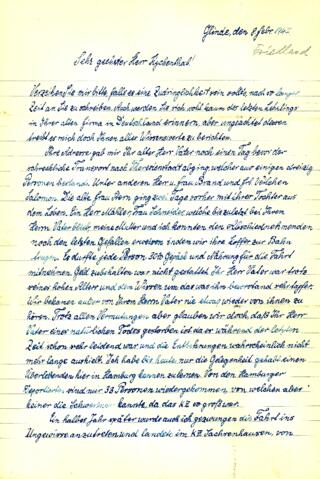 Glinde, den 8. Febr. 194
Friedland
Sehr geehrter Herr Kychenthal!
Verzeihen Sie mir bitte, falls es eine Zudringlichkeit sein sollte, nach so langer
Zeit an Sie zu schreiben. Auch werden Sie sich wohl kaum der letzten Lehrlings
in Ihrer alten Firma in Deutschland erinnern, aber ungeachtet dessen
treibt es mich doch Ihnen alles Wissenswerte zu berichten.
Ihre Adresse gab mir Ihr alter Herr Vater noch einen Tag bevor der
Transport nach Theresienstadt abging, welcher aus einigen dreizig
Personen bestand. Unter anderen Herr u. Frau Brand und Frl.
Salomon. Die alte Frau Stern ging zwei Tage vorher mit ihrer Tochter aus
dem Leben. Ein Mädchen, Frau Schneider, welche bis zuletzt bei Ihrem
Herrn Vater blieb, meine Mutter und ich konnten den Abschiednehmenden
noch den letzten Gefallen erweisen indem wir ihre Koffer zur Bahn
trugen. Es durfte jede Person 50 Pf. Gepäck und Nahrung für die Fahrt
mitnehmen. Geld zu behalten war nicht gestattet. Ihr Herr Vater war trotz
seines hohen Alters und den Wirren um das was ihm bevorstand sehr tapfer.
Wir bekamen außer von Ihrem Herrn Vater nie etwas wieder von ihnen zu
hören. Trotz allen Vermutungen aber glauben wir doch, daß Ihr Herr
Vater einer natürlichen Todes gestorben ist, da er während der letzten
Zeit schon sehr leidend war und die Entbehrungen wahrscheinlich nicht
mehr lange aushielt. Ich habe bis heute nur die Gelegenheit gehabt einen
Überlebenden hier in Hamburg kennen zu lernen. Von den Hamburger
Deportierten sind nur 33 Personen wiedergekommen, von welchen aber
keiner die Schweriner kannte, da das KZ so groß war.
Ein halbes Jahr später wurde auch ich gezwungen die Fahrt ins
Ungewisse anzutreten und landete im KZ Sachsenhausen, von